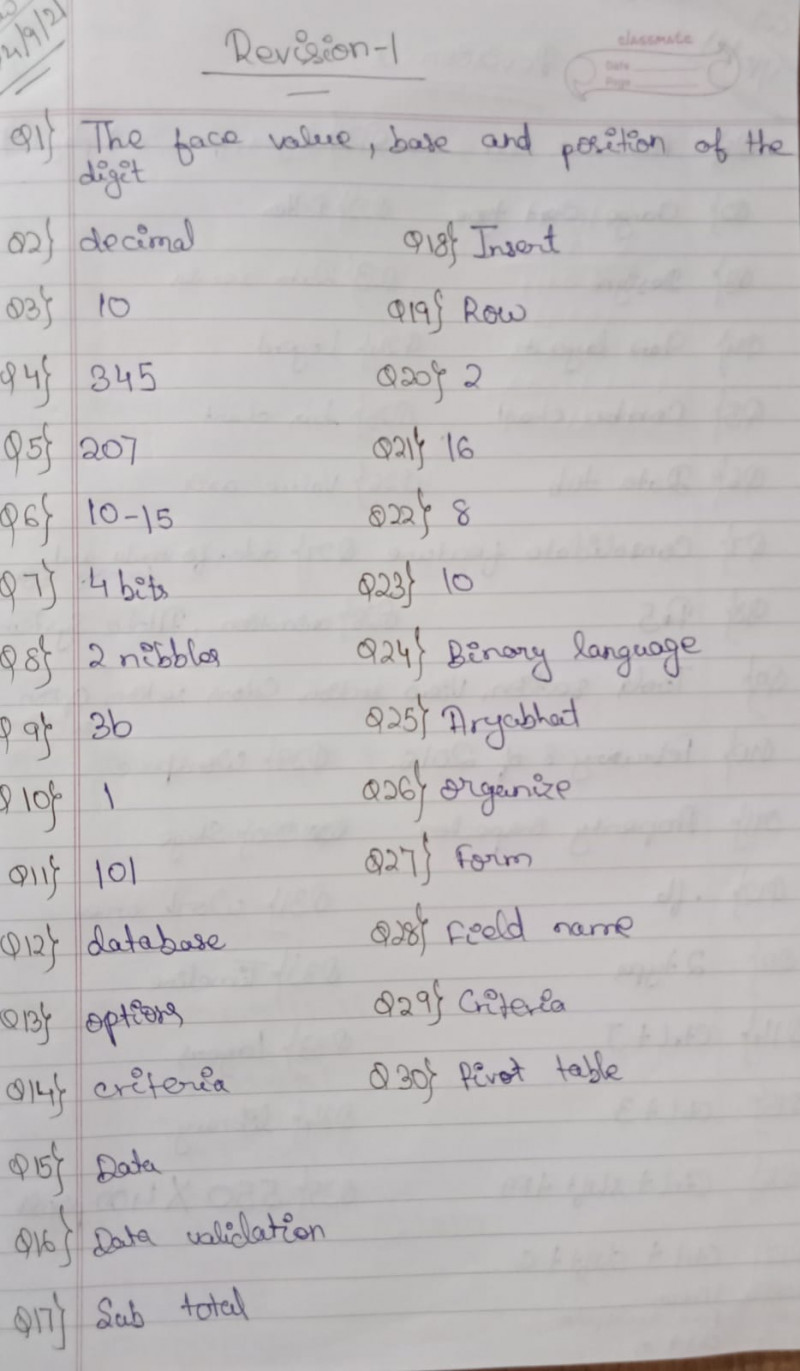 Revision-1
classmate
Date
Page
Q1} The face value, base and position of the
digit
Q2} decimal
Q3} 10
Q4} 345
Q5} 207
Q6} 10-15
Q7} 4 bits
Q8} 2 nibbles
Q9} 36
Q10} 1
Q11} 101
Q12} database
Q13} options
Q14} criteria
Q15} Data
Q16} Data validation
Q17} Sub total
Q18} Insert
Q19} Row
Q20} 2
Q21} 16
Q22} 8
Q23} 10
Q24} Binary language
Q25} Aryabhat
Q26} organize
Q27} Form
Q28} Field name
Q29} Criteria
Q30} Pivot table